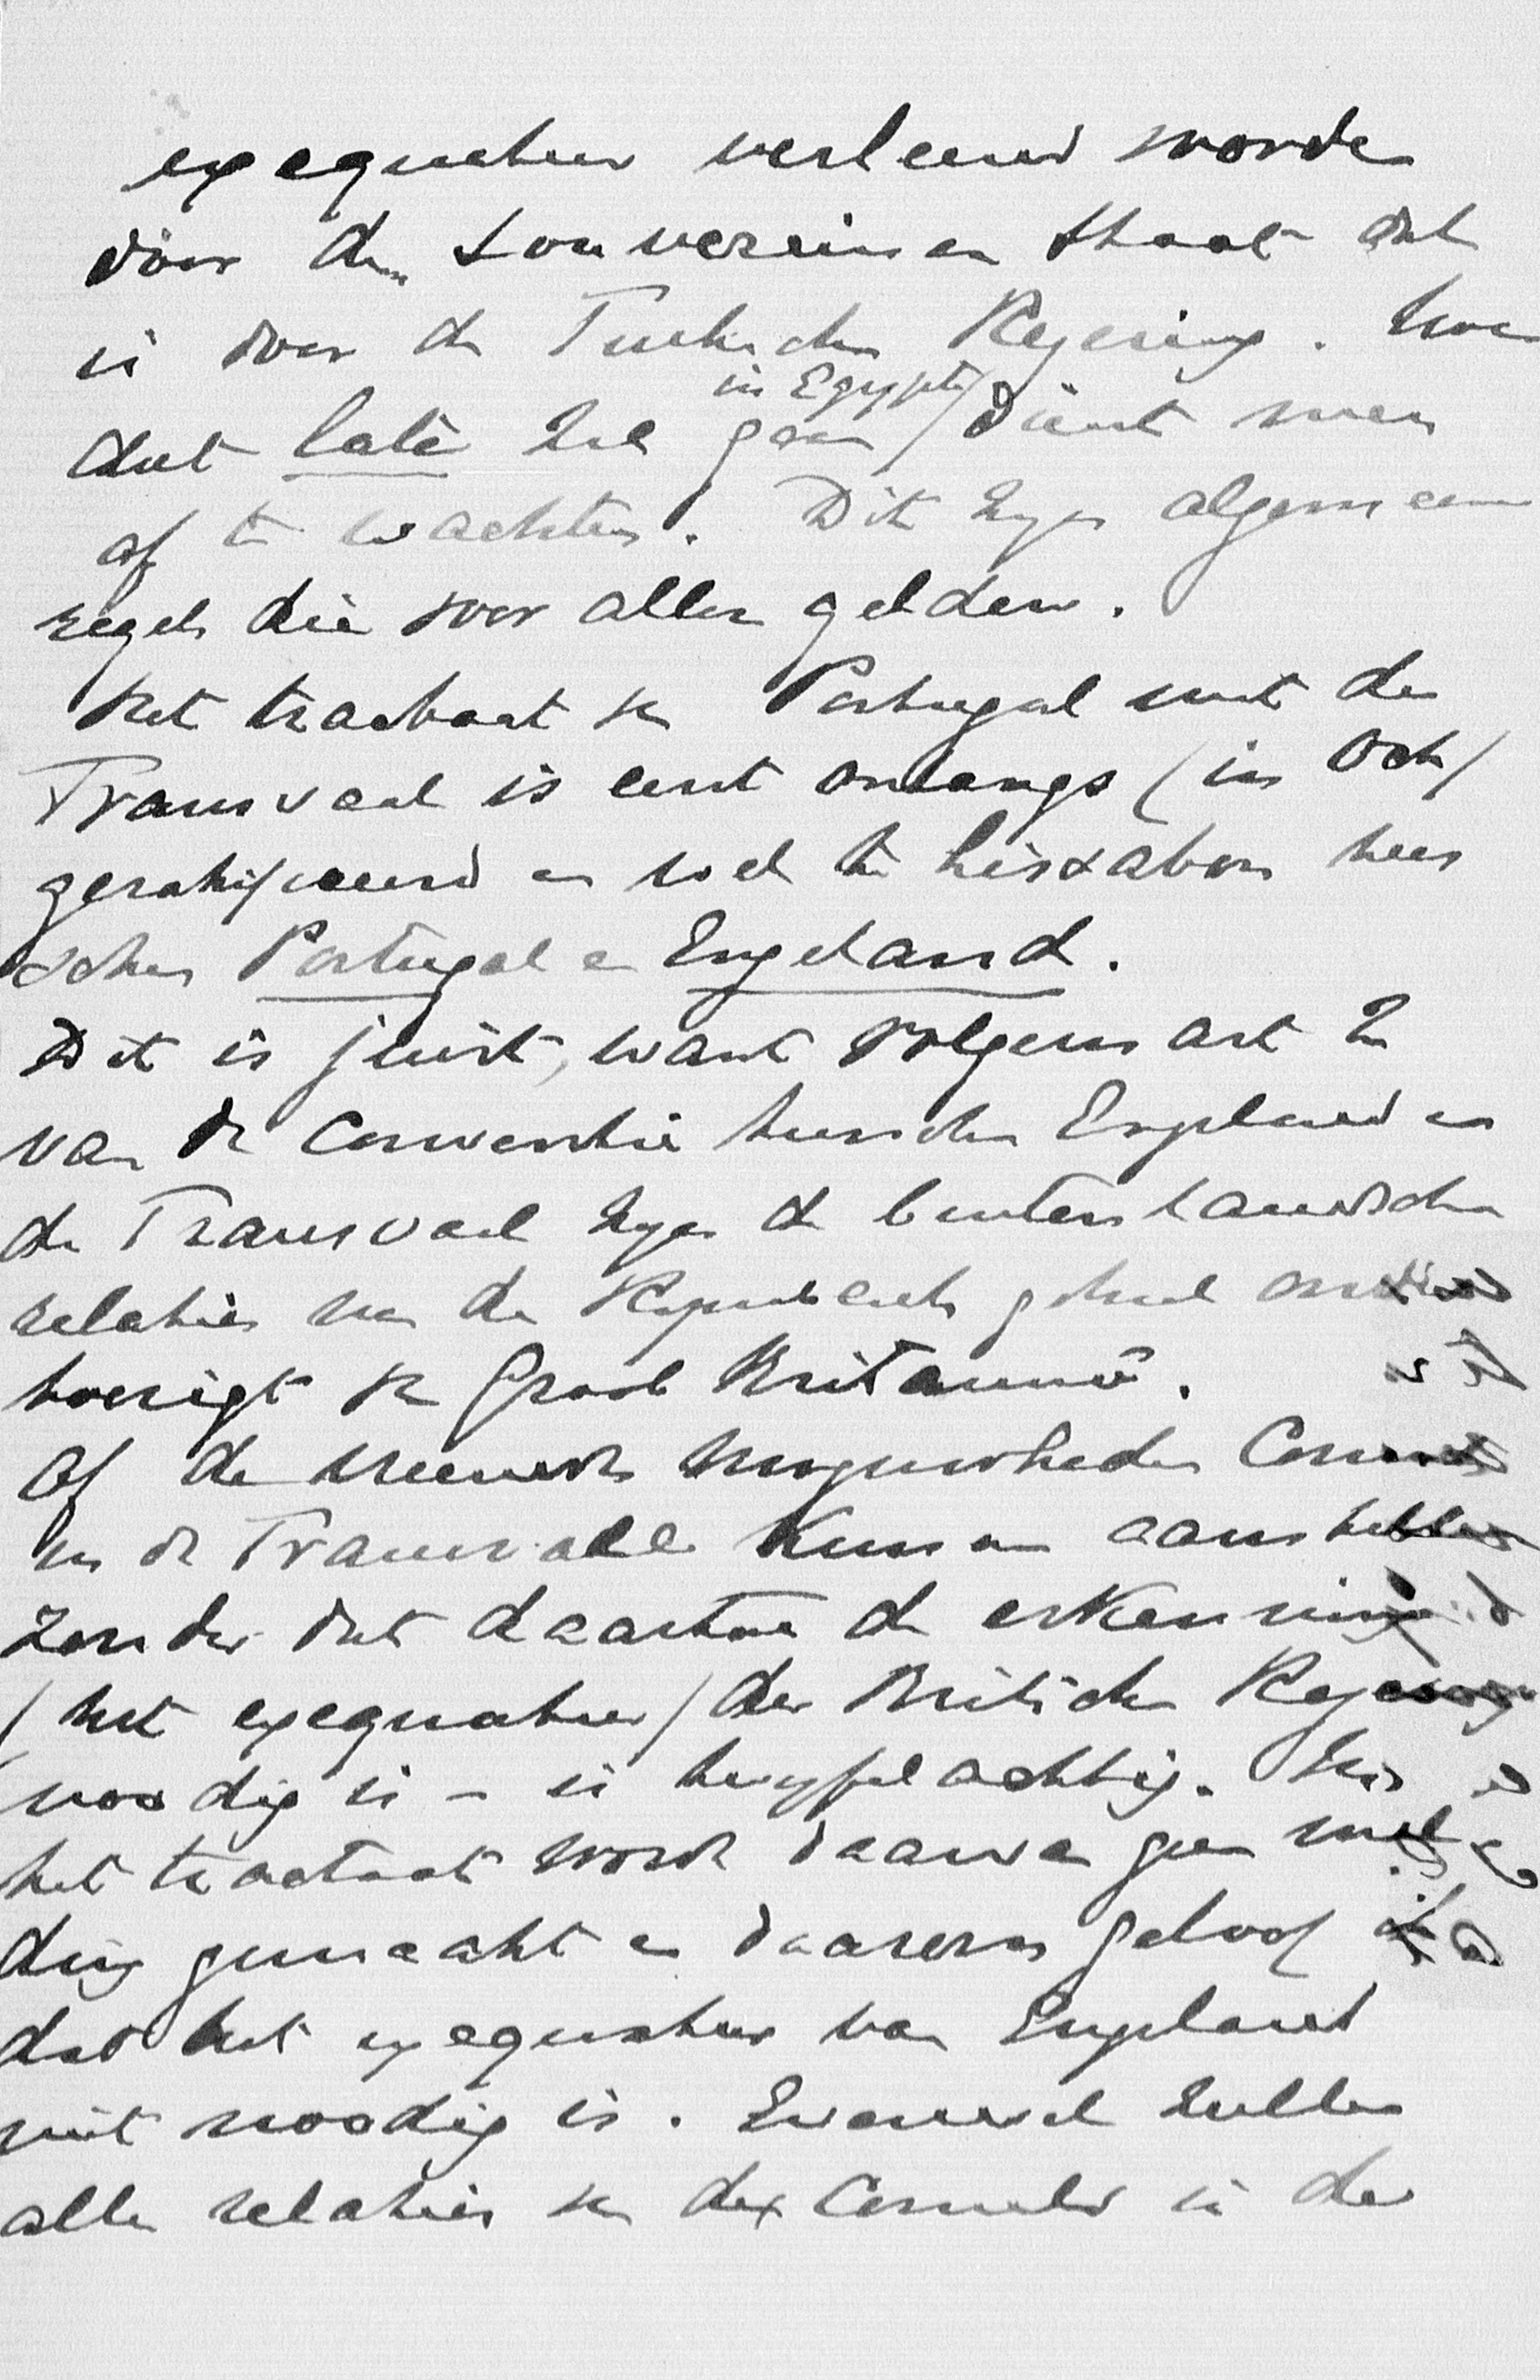 exequatur verleend worden
door den souvereinen staat dat
is door de Turksche Regering. Hoe
in Egypte
dat later zal gaan / dient men
af te wachten. Dit zijn algemeene
regels die voor allen gelden.
Het tractaat v. Portugal met de
Transvaal is eerst onlangs (in Oct)
geratificeerd en wel te Lissabon tus
schen Portugal en Engeland.
Dit is juist, want volgens art 2
van de Conventie tusschen Engeland en
de Transvaal zijn de buitenlandsche
relatien van de Republiek geheel onder
hoorigt van Groot Britannië.
Of de vreemde mogendheden Consuls
in de Transvaal kunnen aanstellen
zonder dat daartoe de erkenning
(het exequatur) der Britsche Regering
noodig is – is twijfelachtig. In
het tractaat wordt daarvan geen mel
ding gemaakt en daarom geloof ik
dat het exequatur van Engeland
niet noodig is. Evenwel zullen
alle relatien van de Consuls in de